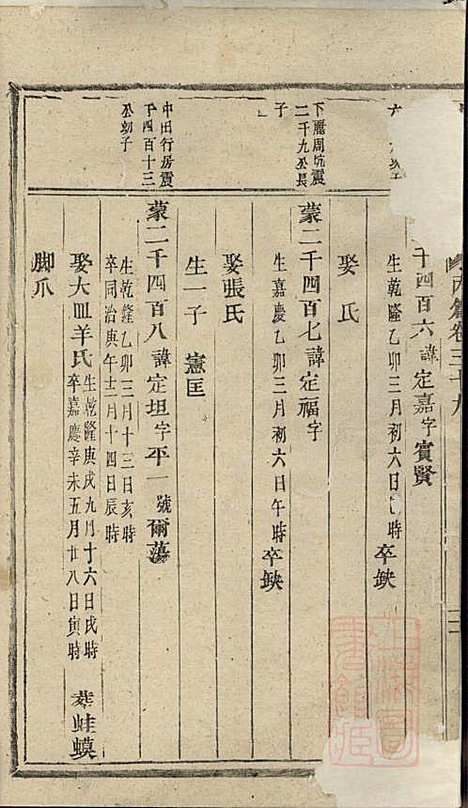 内篇卷三十九
千四百六諱定嘉字賓賢
生乾隆乙卯三月初六日
時
卒缺
娶 氏
下麗周
震
二千九公長
子
蒙二千四百七諱定福字
生嘉慶乙卯三月初六日午時
卒缺
娶張氏
生一子 憲匡
中田行房震
千四百十三
公幼子
蒙二千四百八諱定坦字平一號爾蕩
生乾隆乙卯三月十三日亥時
卒同治庚午十一月十四日辰時
娶大皿羊氏
生乾隆庚戌九月十六日戌時
卒嘉慶辛未五月廿八日寅時
葬蛙蟆
脚爪